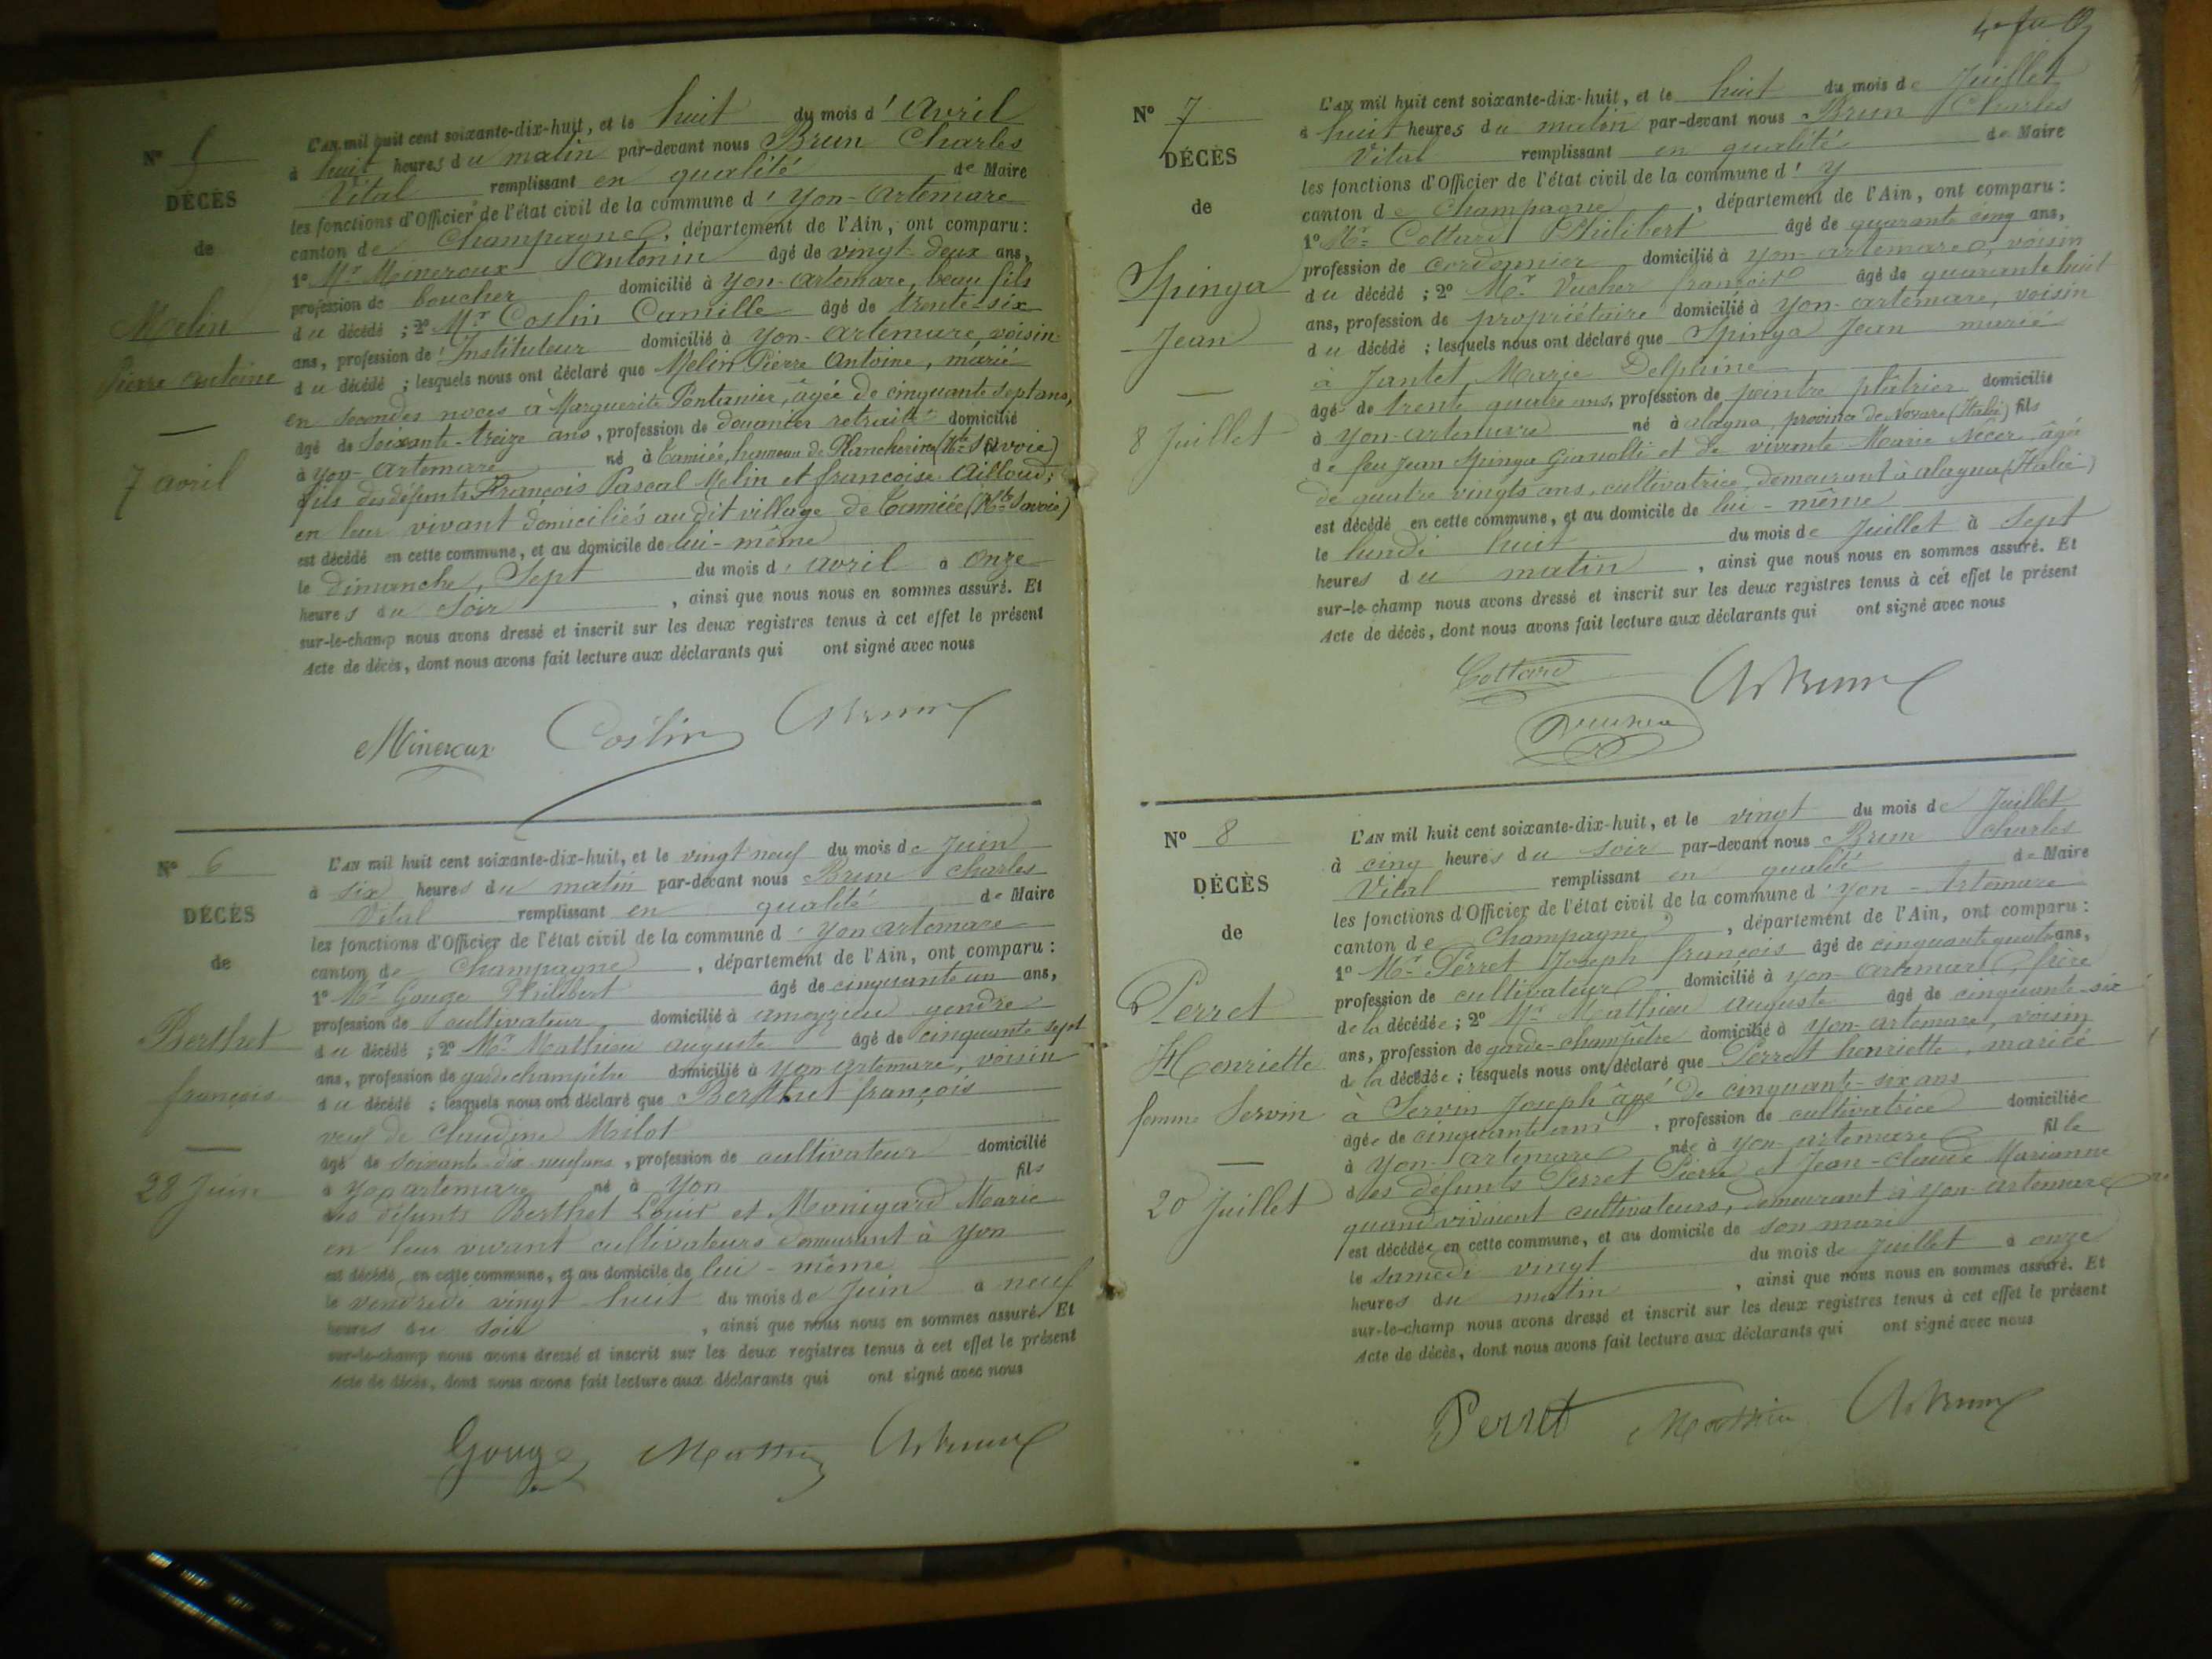 N° 5
DÉCÈS
de
Melin
Pierre Antoine
7 avril
L'AN mil huit cent soixante-dix-huit, et le huit du mois d'Avril
à huit heures du matin par-devant nous Brun Charles
Vital remplissant en qualité de Maire
les fonctions d'Officier de l'état civil de la commune d'Yon-Artemare
canton de Champagne, département de l'Ain, ont comparu :
1° Mr Mineroux Antonin âgé de vingt-deux ans,
profession de boucher domicilié à Yon-Artemare, beau fils
du décédé ; 2° Mr Coslin Camille âgé de trente-six
ans, profession d'Instituteur domicilié à Yon-Artemare, voisin
du décédé ; lesquels nous ont déclaré que Melin Pierre Antoine, marié
en secondes noces à Marguerite Pontanier, âgée de cinquante sept ans,
âgé de soixante-treize ans, profession de douanier retraité domicilié
à Yon-Artemare né à Tamiée, hameau de Plancherine (Hte Savoie)
fils des défunts François Pascal Melin et françoise Ailloud,
en leur vivant domiciliés au dit village de Tamiée (Hte Savoie)
est décédé en cette commune, et au domicile de lui-même
le dimanche, Sept du mois d'avril à onze
heures du soir, ainsi que nous nous en sommes assuré. Et
sur-le-champ nous avons dressé et inscrit sur les deux registres tenus à cet effet le présent
Acte de décès, dont nous avons fait lecture aux déclarants qui ont signé avec nous
Mineroux Coslin Ch Brun
N° 6
DÉCÈS
de
Berthet
françois
28 Juin
L'AN mil huit cent soixante-dix-huit, et le vingt neuf du mois de Juin
à six heures du matin par-devant nous Brun Charles
Vital remplissant en qualité de Maire
les fonctions d'Officier de l'état civil de la commune d'Yon artemare
canton de Champagne, département de l'Ain, ont comparu :
1° Mr Gouge Philibert âgé de cinquante un ans,
profession de cultivateur domicilié à ameyzieu gendre
du décédé ; 2° Mr Mathieu auguste âgé de cinquante sept
ans, profession de garde champêtre domicilié à Yon artemare, voisin
du décédé ; lesquels nous ont déclaré que Berthet françois
veuf de Claudine Milot
âgé de soixante-dix-neuf ans, profession de cultivateur domicilié
à Yon artemare né à Yon fils
des défunts Berthet Louis et Monigard Marie
en leur vivant cultivateurs demeurant à Yon
est décédé en cette commune, et au domicile de lui-même
le vendredi vingt-huit du mois de Juin à neuf
heures du soir, ainsi que nous nous en sommes assuré. Et
sur-le-champ nous avons dressé et inscrit sur les deux registres tenus à cet effet le présent
Acte de décès, dont nous avons fait lecture aux déclarants qui ont signé avec nous
Gouge Mathieu Ch Brun
N° 7
DÉCÈS
de
Spinga
Jean
8 Juillet
L'AN mil huit cent soixante-dix-huit, et le huit du mois de Juillet
à huit heures du matin par-devant nous Brun Charles
Vital remplissant en qualité de Maire
les fonctions d'Officier de l'état civil de la commune d'Y
canton de Champagne, département de l'Ain, ont comparu :
1° Mr Cottard Philibert âgé de quarante cinq ans,
profession de cordonnier domicilié à Yon-artemare, voisin
du décédé ; 2° Mr Vucher françois âgé de quarante huit
ans, profession de propriétaire domicilié à Yon-artemare, voisin
du décédé ; lesquels nous ont déclaré que Spinga Jean marié
à Jantet Marie Delphine
âgé de trente quatre ans, profession de peintre plâtrier domicilié
à Yon-artemare né à alagna, province de Novare (Italie) fils
de feu Jean Spinga Gianolli et de vivante Marie Necer âgée
de quatre vingts ans, cultivatrice, demeurant à alagna (Italie)
est décédé en cette commune, et au domicile de lui-même
le lundi huit du mois de Juillet à sept
heures du matin, ainsi que nous nous en sommes assuré. Et
sur-le-champ nous avons dressé et inscrit sur les deux registres tenus à cet effet le présent
Acte de décès, dont nous avons fait lecture aux déclarants qui ont signé avec nous
Cottard Ch Brun
N° 8
DÉCÈS
de
Perret
Henriette
femme Servin
20 Juillet
L'AN mil huit cent soixante-dix-huit, et le vingt du mois de Juillet
à cinq heures du soir par-devant nous Brun Charles
Vital remplissant en qualité de Maire
les fonctions d'Officier de l'état civil de la commune d'Yon-Artemare
canton de Champagne, département de l'Ain, ont comparu :
1° Mr Perret Joseph françois âgé de cinquante quatre ans,
profession de cultivateur domicilié à Yon-artemare, frère
de la décédée ; 2° Mr Mathieu Auguste âgé de cinquante-six
ans, profession de garde-champêtre domicilié à Yon-artemare, voisin
de la décédée ; lesquels nous ont déclaré que Perret henriette, mariée
à Servin Joseph âgé de cinquante-six ans
âgée de cinquante ans, profession de cultivatrice domiciliée
à Yon-artemare née à Yon-artemare fille
des défunts Perret Pierre et Jean-Claude Marianne
quand vivaient cultivateurs, demeurant à Yon-artemare
est décédée en cette commune, et au domicile de son mari
le samedi vingt du mois de Juillet à onze
heures du matin, ainsi que nous nous en sommes assuré. Et
sur-le-champ nous avons dressé et inscrit sur les deux registres tenus à cet effet le présent
Acte de décès, dont nous avons fait lecture aux déclarants qui ont signé avec nous
Perret Mathieu Ch Brun